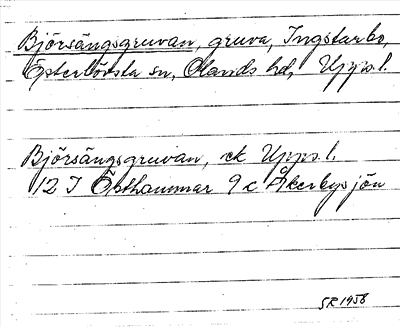 Björsängsgruvan, gruva, Ingstarbo,
Österlövsta sn, Olands hd, Upps.l.
Björsängsgruvan, ek Upps.l.
12 I Östhammar 9 c Åkerbysjön
SR 1958